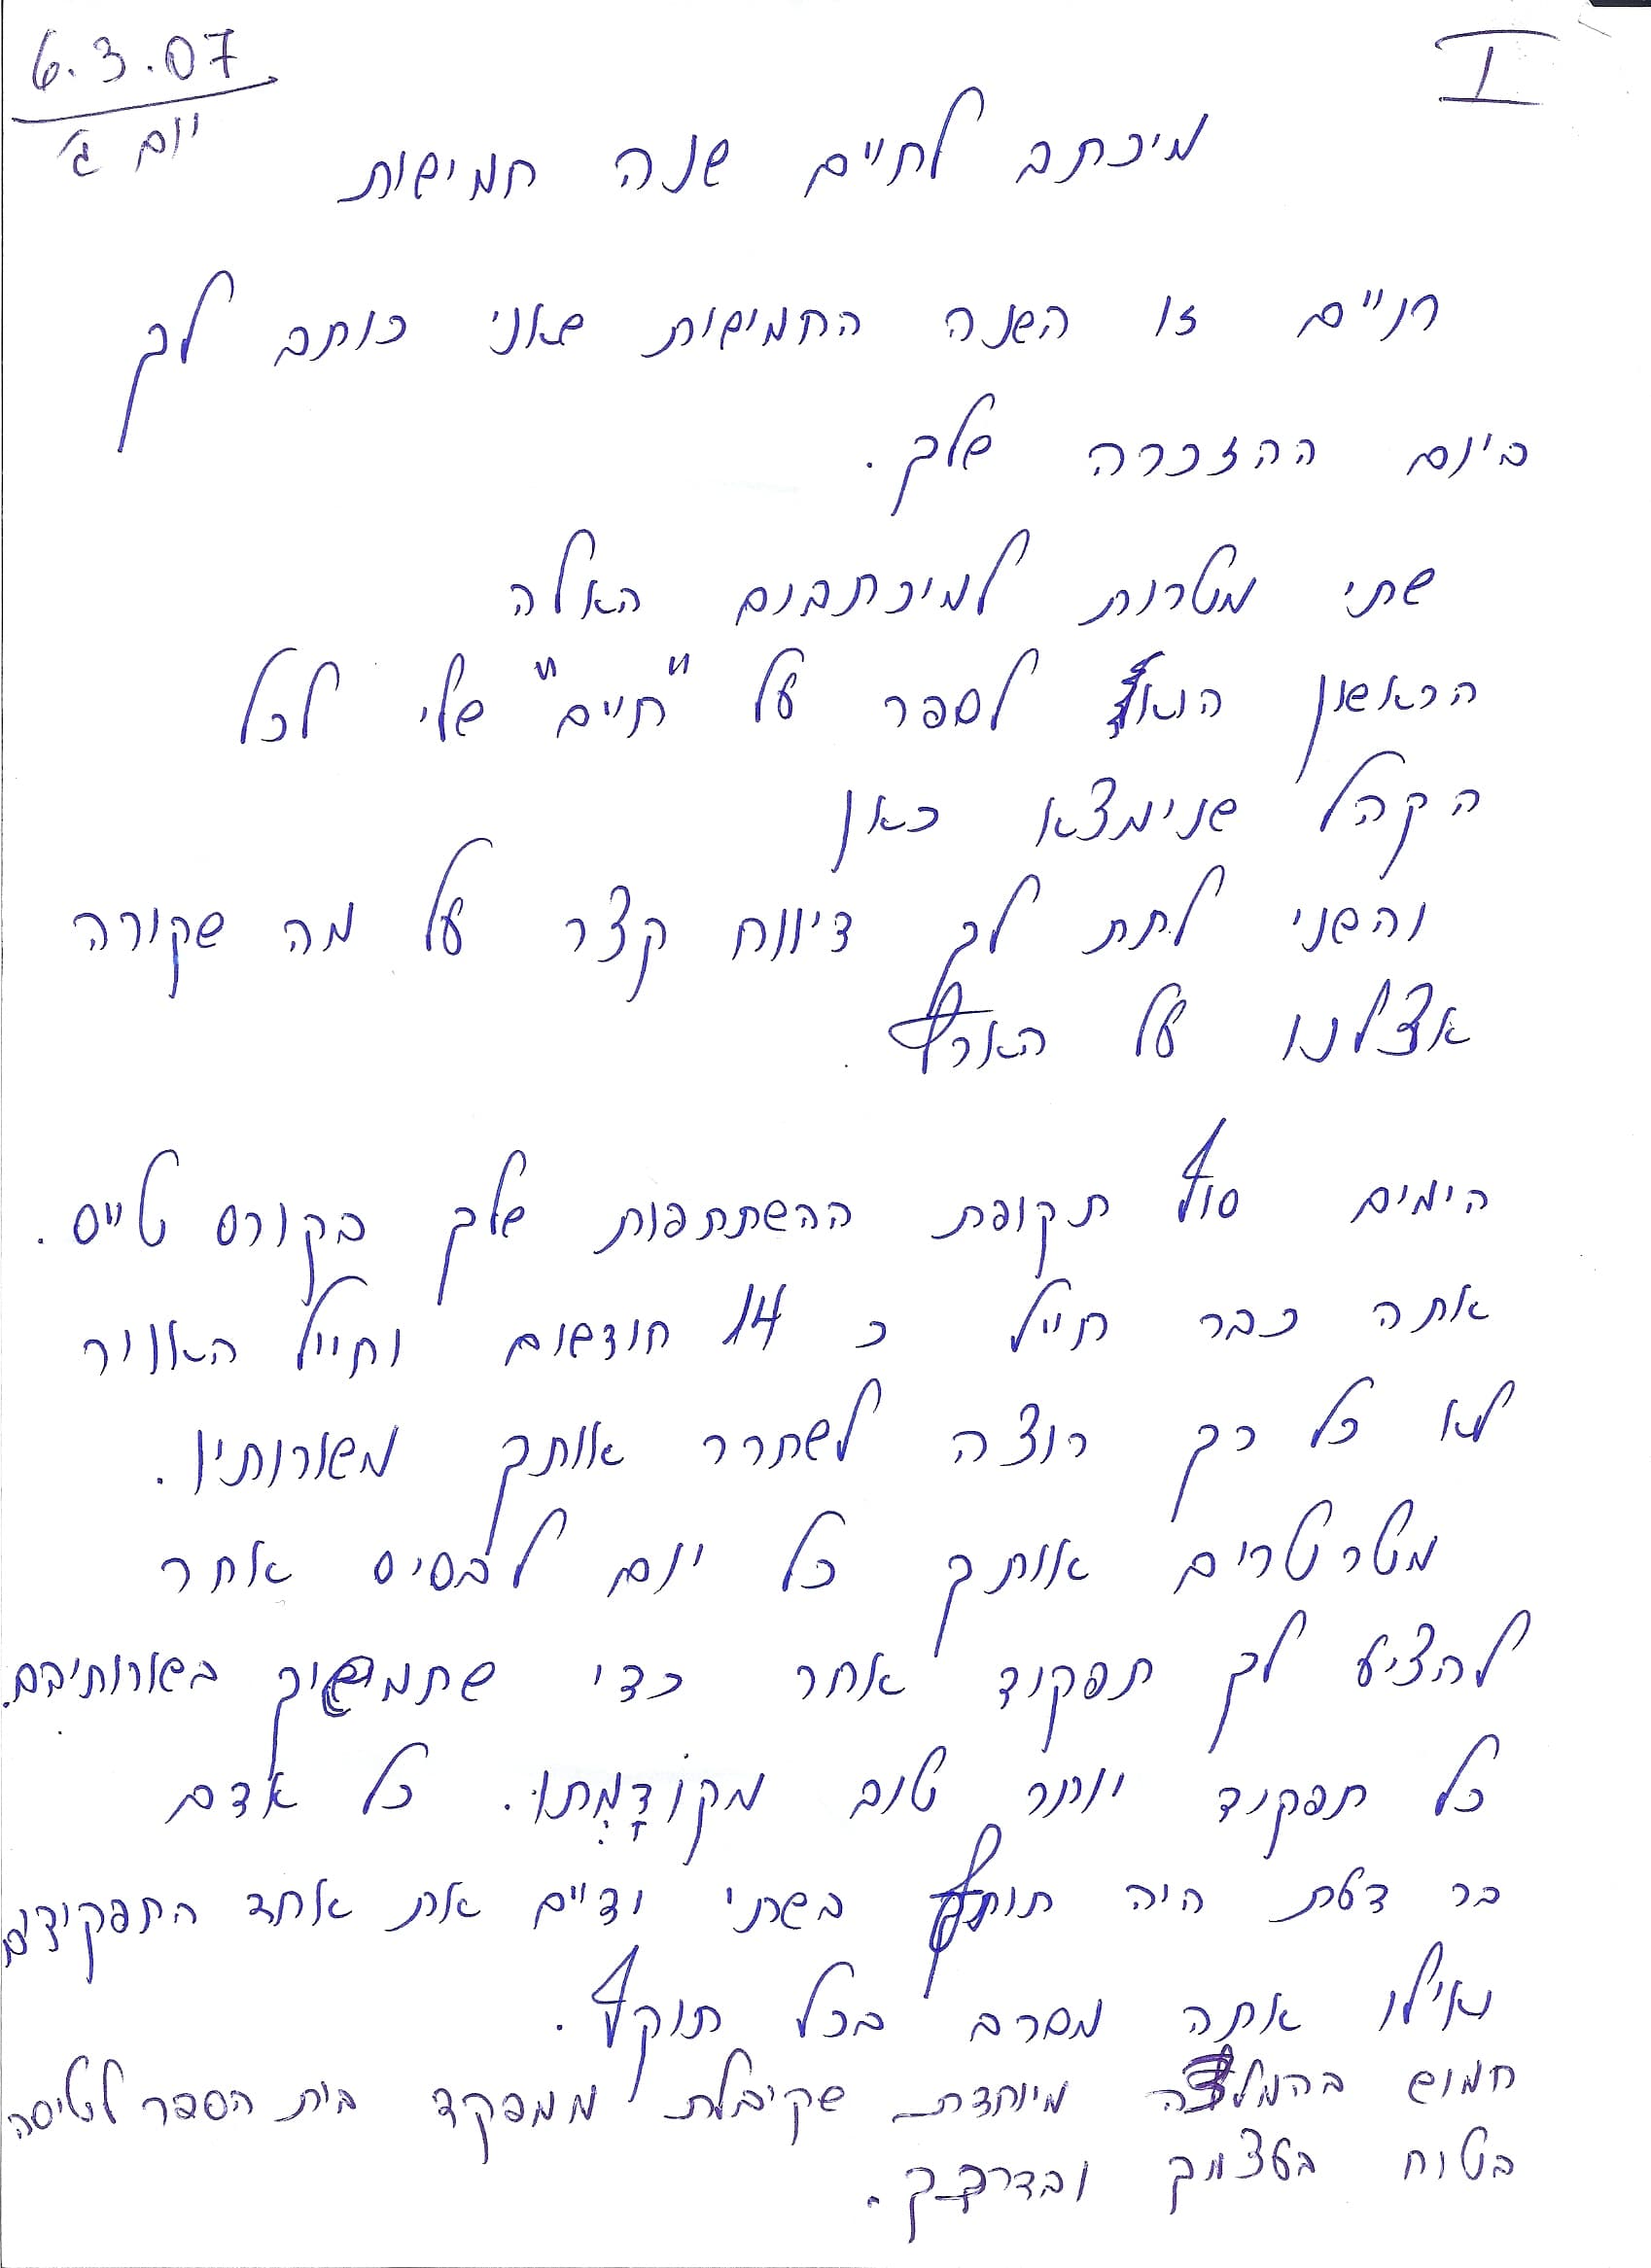 I
6.3.07
יום ג'
מיכתב לחיים שנה חמישית
חיים זו השנה החמישית שאני כותב לך
ביום ההזכרה שלך.
שתי מטרות למיכתבים האלה
הראשון הוא לספר על "חיים" שלי לכל
הקהל שנימצא כאן
והשני לתת לך דיווח קצר על מה שקורה
אצלנו על הארץ.
הימים סוף תקופת ההשתתפות שלך בקורס טייס.
אתה כבר חייל כ 14 חודשים וחייל האוויר
לא כל כך רוצה לשחרר אותך משורותיו.
מטרטרים אותך כל יום לבסיס אחר
להציע לך תפקיד אחר כדי שתמשיך בשורותיהם.
כל תפקיד יותר טוב מקודָמְתוֹ. כל אדם
בר דעת היה חוטף בשתי ידיים את אחד התפקידים
ואילו אתה מסרב בכל תוקף.
חמוש בהמלצה מיוחדת שקיבלת ממפקד בית הספר לטיסה
בטוח בעצמך ובדרכך.